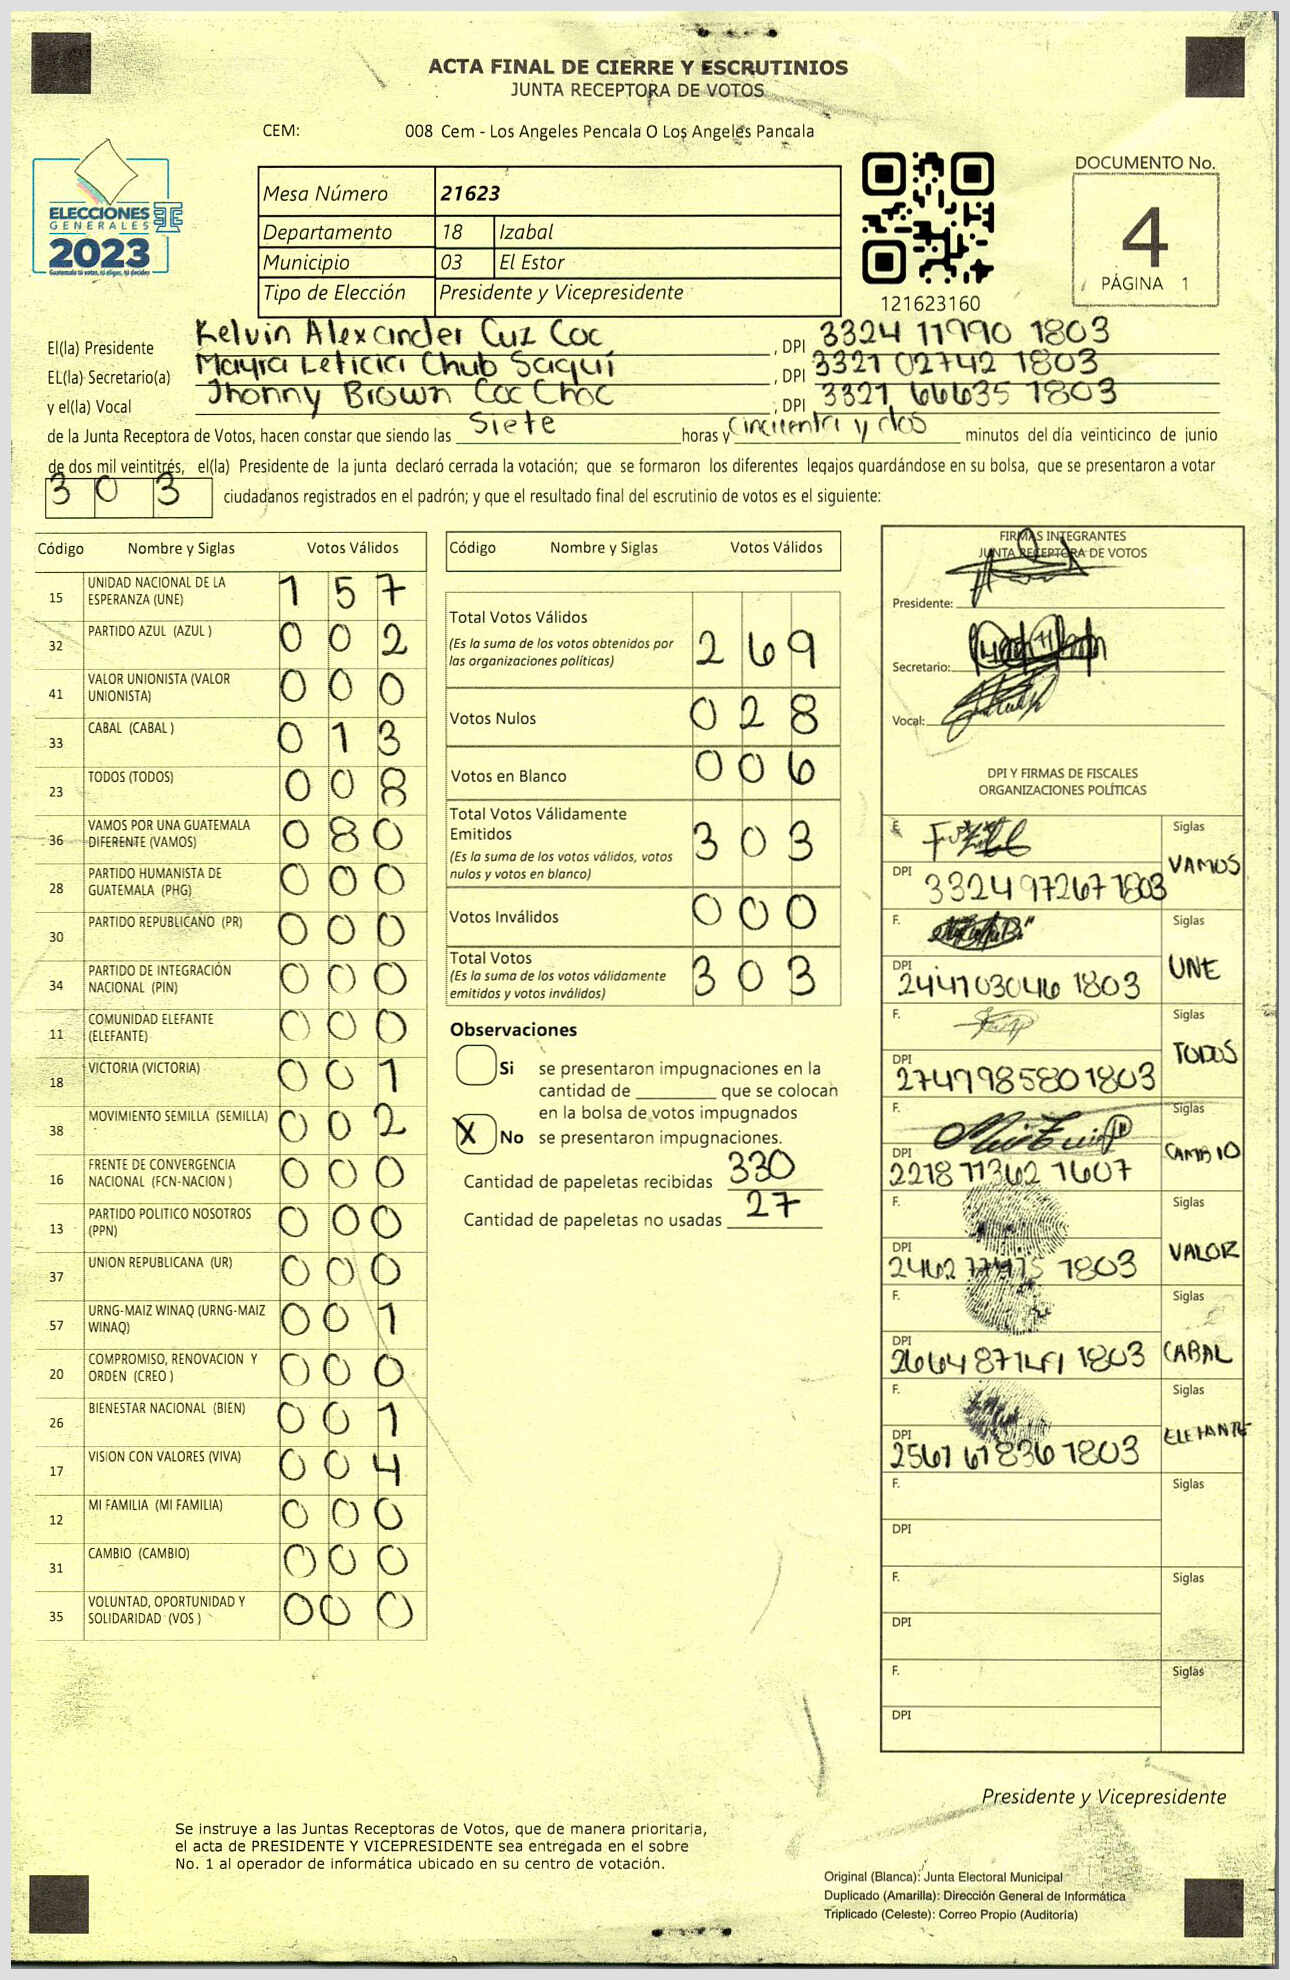 ACTA FINAL DE CIERRE Y ESCRUTINIOS
JUNTA RECEPTORA DE VOTOS
CEM: 008 Cem - Los Angeles Pencala O Los Angeles Pancala
ELECCIONES
GENERALES
2023
Guatemala tú votas, tú eliges, tú decides
Mesa Número 21623
Departamento 18 Izabal
Municipio 03 El Estor
Tipo de Elección Presidente y Vicepresidente
121623160
DOCUMENTO No.
4
PÁGINA 1
El(la) Presidente Kelvin Alexander Cuz Coc , DPI 3324 11990 1803
EL(la) Secretario(a) Mayra Leticia Chub Saquí , DPI 3321 02742 1803
y el(la) Vocal Jhonny Brown Coc Choc , DPI 3321 66635 1803
de la Junta Receptora de Votos, hacen constar que siendo las Siete horas y cincuenta y dos minutos del día veinticinco de junio
de dos mil veintitrés, el(la) Presidente de la junta declaró cerrada la votación; que se formaron los diferentes legajos guardándose en su bolsa, que se presentaron a votar
303 ciudadanos registrados en el padrón; y que el resultado final del escrutinio de votos es el siguiente:
Código Nombre y Siglas Votos Válidos
15 UNIDAD NACIONAL DE LA ESPERANZA (UNE) 157
32 PARTIDO AZUL (AZUL ) 002
41 VALOR UNIONISTA (VALOR UNIONISTA) 000
33 CABAL (CABAL ) 013
23 TODOS (TODOS) 008
36 VAMOS POR UNA GUATEMALA DIFERENTE (VAMOS) 080
28 PARTIDO HUMANISTA DE GUATEMALA (PHG) 000
30 PARTIDO REPUBLICANO (PR) 000
34 PARTIDO DE INTEGRACIÓN NACIONAL (PIN) 000
11 COMUNIDAD ELEFANTE (ELEFANTE) 000
18 VICTORIA (VICTORIA) 001
38 MOVIMIENTO SEMILLA (SEMILLA) 002
16 FRENTE DE CONVERGENCIA NACIONAL (FCN-NACION ) 000
13 PARTIDO POLITICO NOSOTROS (PPN) 000
37 UNION REPUBLICANA (UR) 000
57 URNG-MAIZ WINAQ (URNG-MAIZ WINAQ) 001
20 COMPROMISO, RENOVACION Y ORDEN (CREO ) 000
26 BIENESTAR NACIONAL (BIEN) 001
17 VISION CON VALORES (VIVA) 004
12 MI FAMILIA (MI FAMILIA) 000
31 CAMBIO (CAMBIO) 000
35 VOLUNTAD, OPORTUNIDAD Y SOLIDARIDAD (VOS ) 000
Código Nombre y Siglas Votos Válidos
Total Votos Válidos 269
(Es la suma de los votos obtenidos por
las organizaciones políticas)
Votos Nulos 028
Votos en Blanco 006
Total Votos Válidamente
Emitidos 303
(Es la suma de los votos válidos, votos
nulos y votos en blanco)
Votos Inválidos 000
Total Votos 303
(Es la suma de los votos válidamente
emitidos y votos inválidos)
Observaciones
Si se presentaron impugnaciones en la
cantidad de ________ que se colocan
en la bolsa de votos impugnados
X No se presentaron impugnaciones.
Cantidad de papeletas recibidas 330
Cantidad de papeletas no usadas 27
FIRMAS INTEGRANTES
JUNTA RECEPTORA DE VOTOS
Presidente:
Secretario:
Vocal:
DPI Y FIRMAS DE FISCALES
ORGANIZACIONES POLÍTICAS
F. Siglas VAMOS
DPI 3324972671803
F. Siglas UNE
DPI 1803
F. Siglas TODOS
DPI 2747985801803
F. Siglas CAMBIO
DPI 2218 71362 1607
F. Siglas VALOR
DPI 2462 1803
F. Siglas CABAL
DPI 1803
F. Siglas ELEFANTE
DPI 2567 67836 1803
F. Siglas
DPI
F. Siglas
DPI
F. Siglas
DPI
Presidente y Vicepresidente
Se instruye a las Juntas Receptoras de Votos, que de manera prioritaria,
el acta de PRESIDENTE Y VICEPRESIDENTE sea entregada en el sobre
No. 1 al operador de informática ubicado en su centro de votación.
Original (Blanca): Junta Electoral Municipal
Duplicado (Amarilla): Dirección General de Informática
Triplicado (Celeste): Correo Propio (Auditoría)